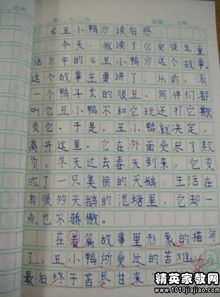 《丑小鸭》读后感
今天,我读了《安徒生童
话》中的《丑小鸭》这个故事。
这个故事主要讲了:从前,有
一个鸭子长的很丑。同伴们都
叫它丑小鸭不和它玩还打它欺
负它。于是,丑小鸭就决定,
离开这里。它在外面受尽了欺
负,冬天过去春天到来,它变
成了一只美丽的天鹅,生活在
有很多天鹅的池塘里,它却一
点也不骄傲。
在着篇故事里形象的描写
了,丑小鸭所受过的苦难,
最后终于苦尽甘来
精英家教网
www.1010jiajiao.com